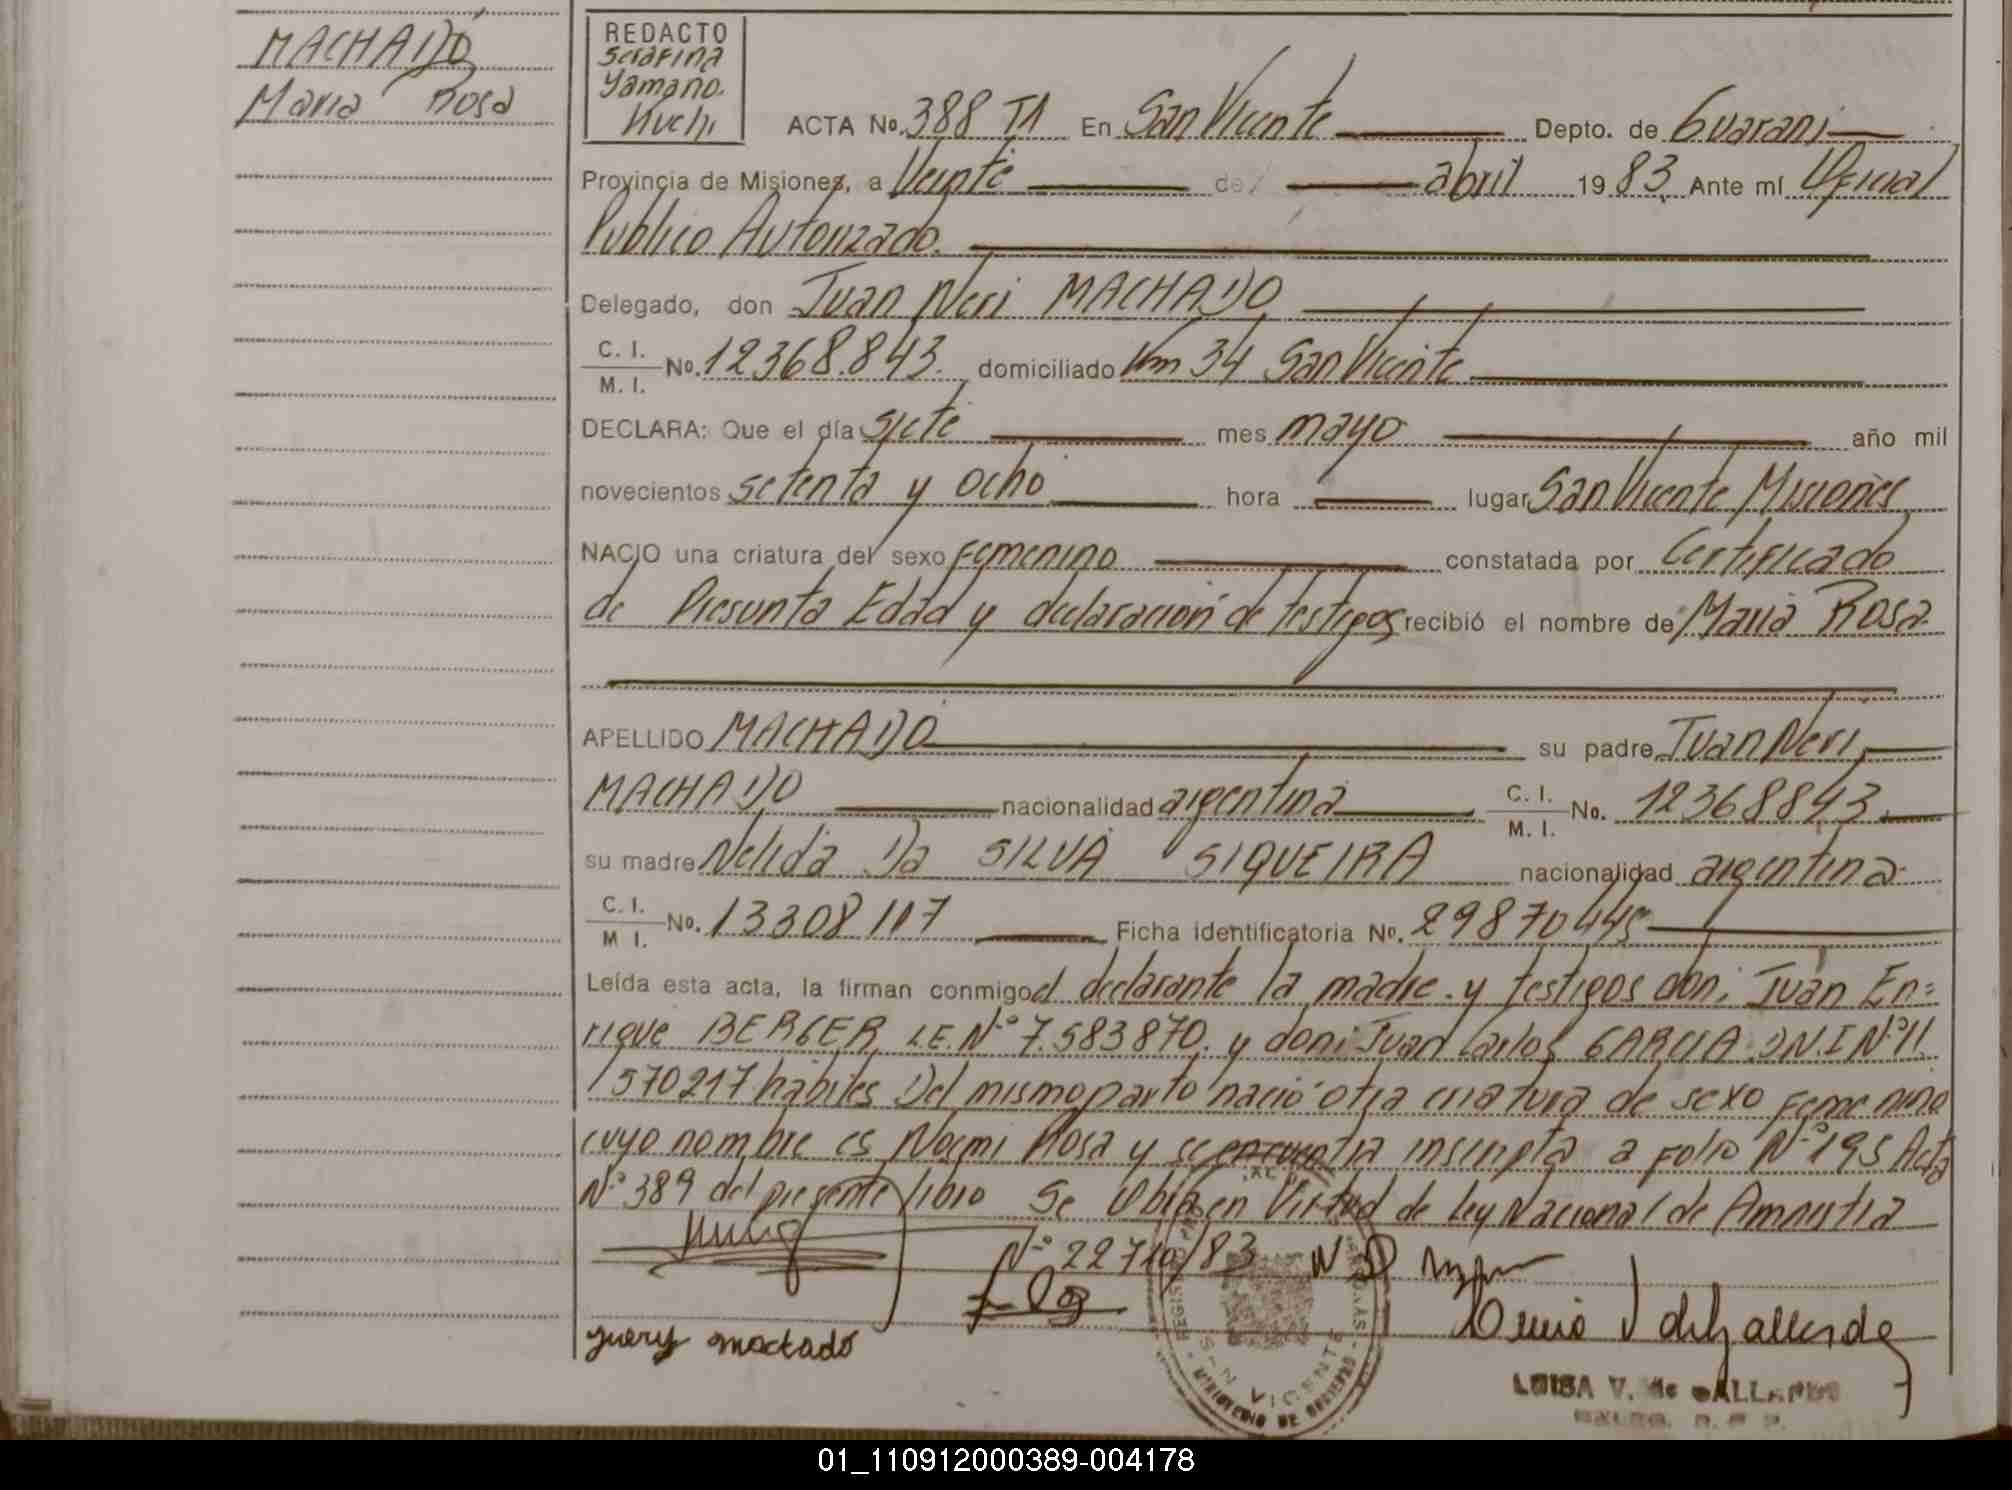 MACHADO
Maria Rosa
REDACTO
Serafina
Yamano.
Kuchi
ACTA No. 388 T1 En San Vicente Depto. de Guarani
Provincia de Misiones, a Veinte de abril 1983. Ante mí Oficial
Publico Autorizado.
Delegado, don Juan Neri MACHADO
C. I.
M. I. No. 12368.843. domiciliado Km 34 San Vicente
DECLARA: Que el día siete mes mayo año mil
novecientos setenta y ocho hora lugar San Vicente Misiones
NACIO una criatura del sexo femenino constatada por Certificado
de Presunta Edad y declaración de testigos recibió el nombre de Maria Rosa
APELLIDO MACHADO su padre Juan Neri
MACHADO nacionalidad argentina C. I.
M. I. No. 12368843.
su madre Nelida Da SILVA SIQUEIRA nacionalidad argentina
C. I.
M I. No. 13308117 Ficha identificatoria No. 29870445
Leída esta acta, la firman conmigo el declarante la madre y testigos don: Juan En=
rique BERGER L.E. Nº 7.583870. y don: Juan Carlos GARCIA D.N.I Nº 11
570217 habiles Del mismo parto nació otra criatura de sexo femenino
cuyo nombre es Noemi Rosa y se encuentra inscripta a folio Nº 195 Acta
Nº 389 del presente libro Se Obra en Virtud de Ley Nacional de Amnistia
Nº 22710/83
juery mactado
SAN VICENTE
MINISTERIO DE GOBIERNO
LUISA V. de GALLARDO
01_110912000389-004178